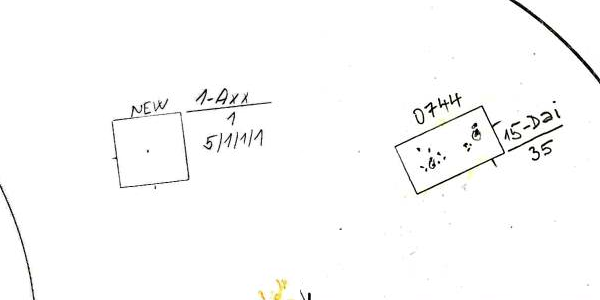 NEW
1-Axx
1
5/1/1/1
0744
15-Dai
35